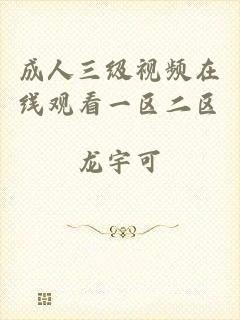 成人三级视频在
线观看一区二区
龙宇可